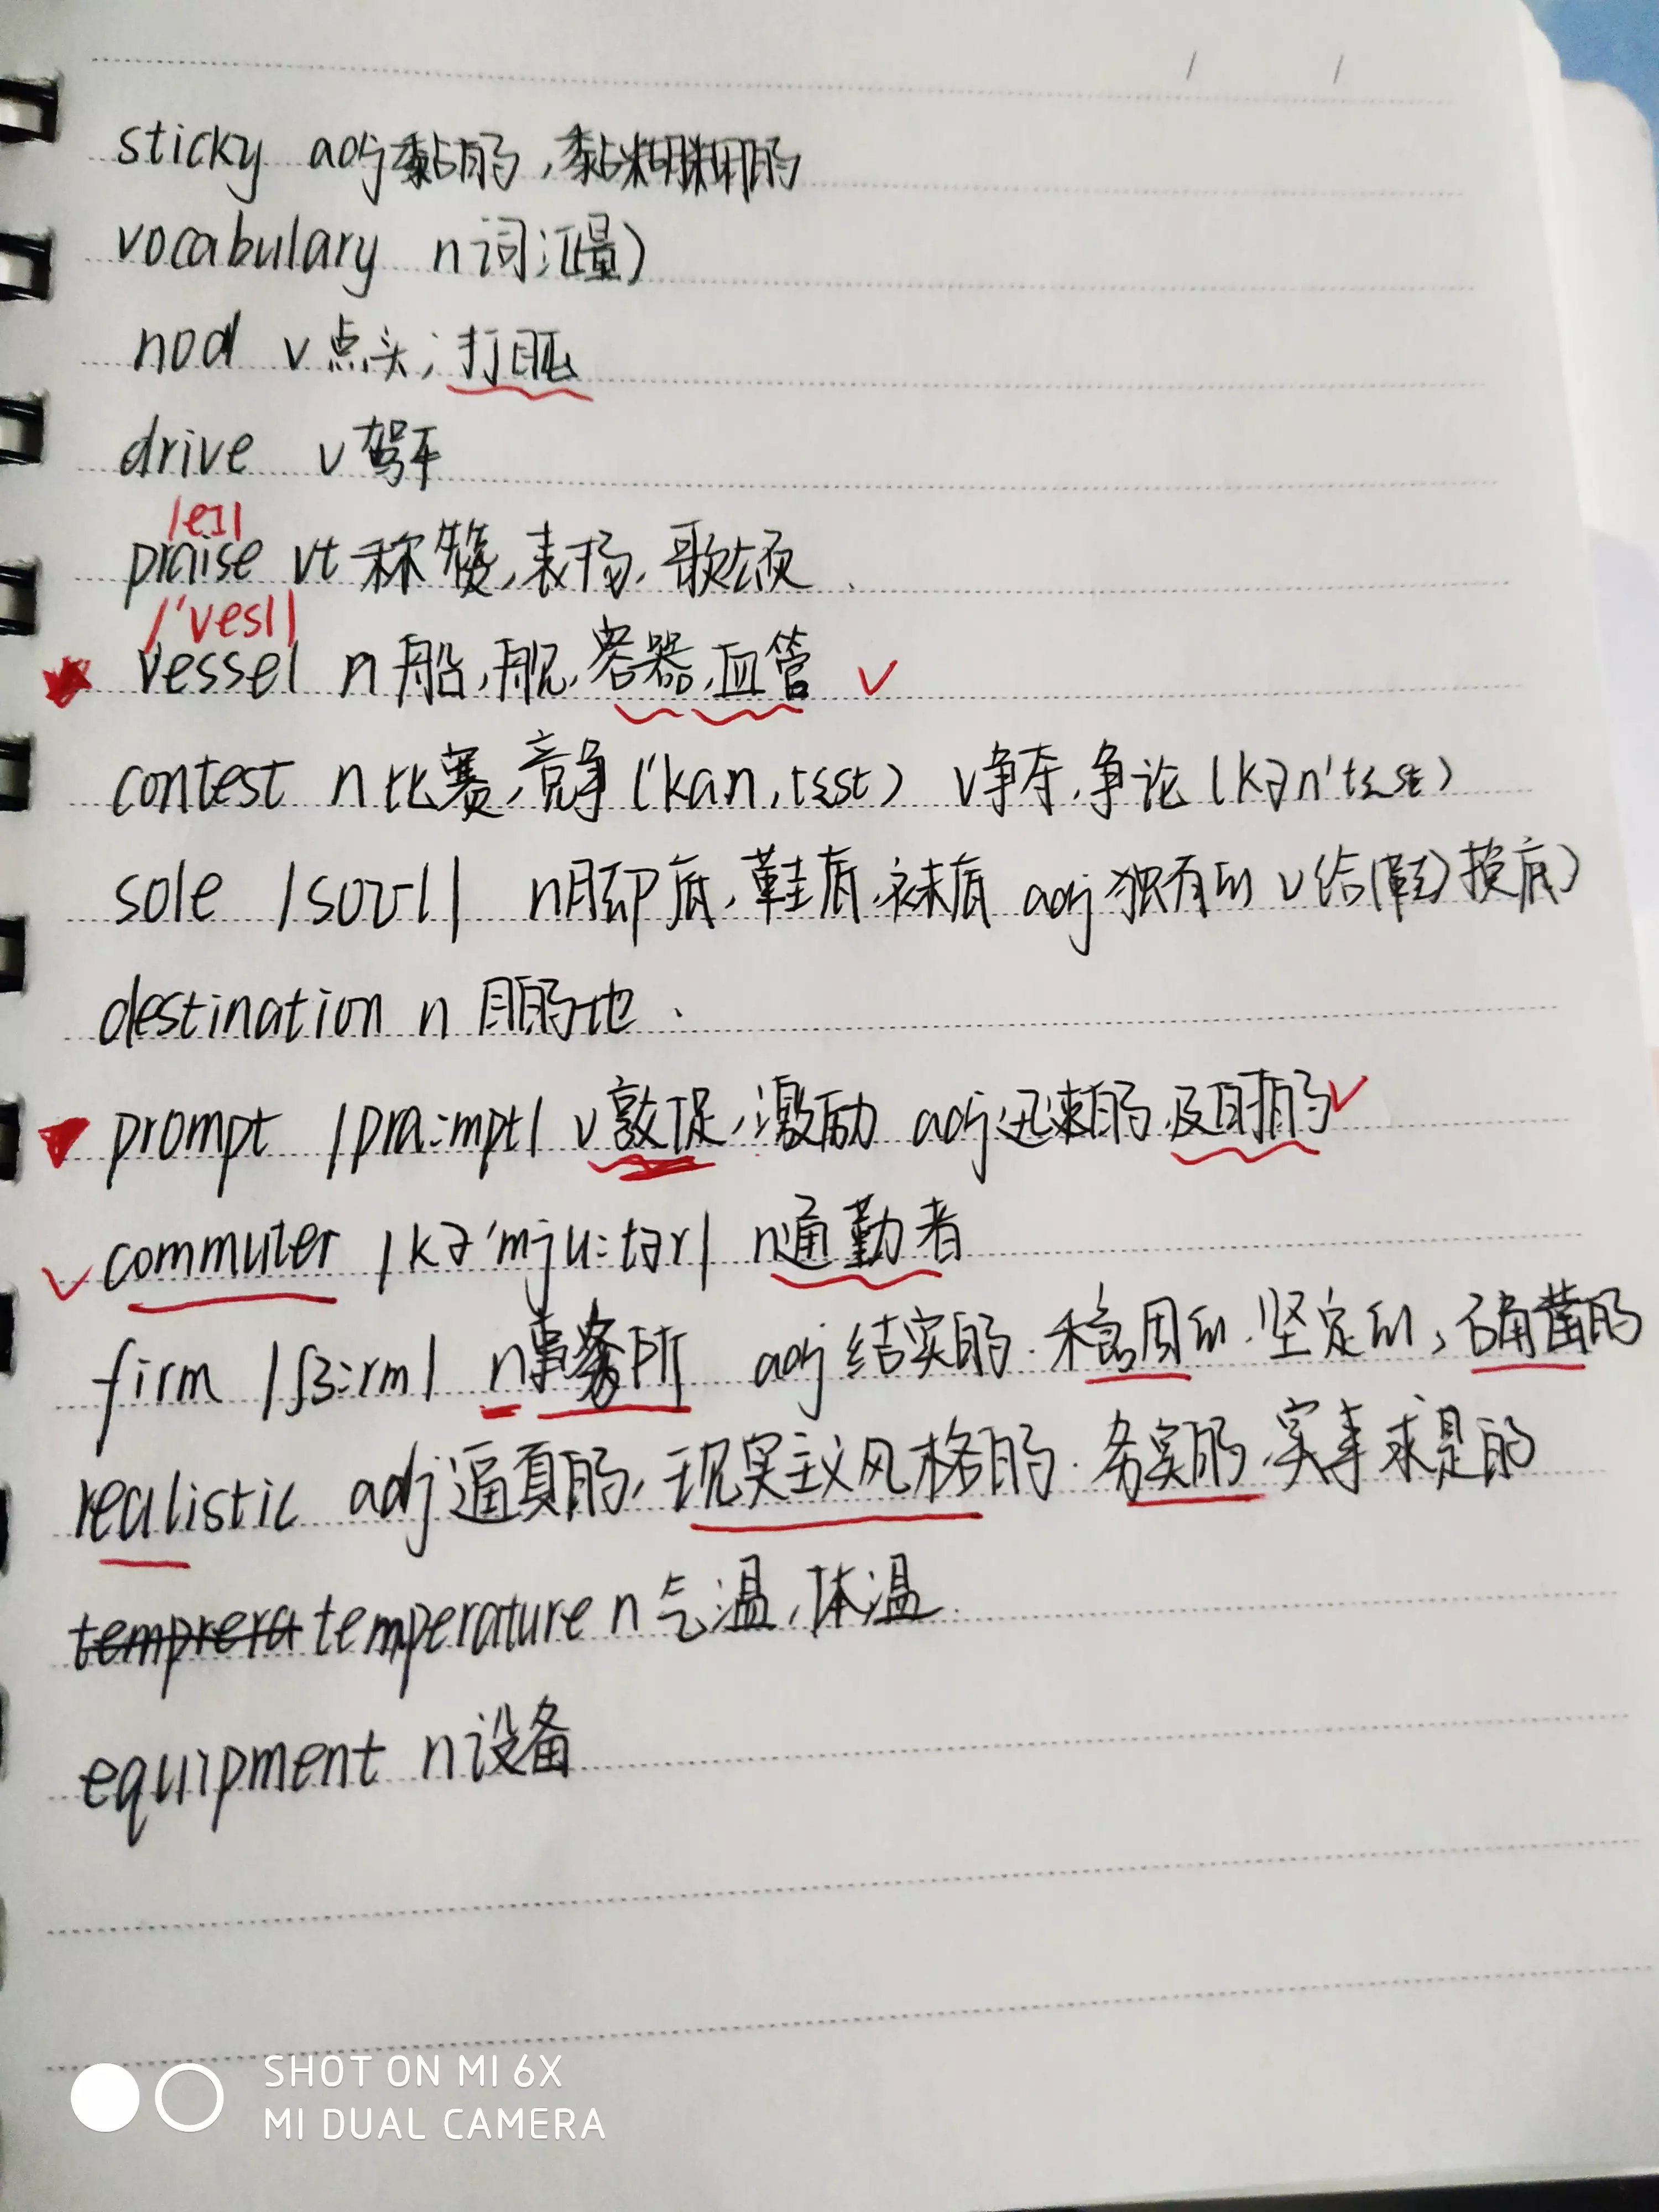 sticky adj 黏的,黏糊糊的
vocabulary n 词汇(量)
nod v 点头;打盹
drive v 驾车
/eɪ/
praise vt 称赞,表扬,歌颂
/'vesl/
vessel n 船,舰,容器,血管
contest n 比赛,竞争('kan,tɛst) v 争夺,争论(kən'tɛst)
sole /soʊl/ n 脚底,鞋底,袜底 adj 独有的 v 给(鞋)换底)
destination n 目的地.
prompt /pra:mpt/ v 敦促,激励 adj 迅速的,及时的
commuter /kə'mju:tər/ n 通勤者
firm /fɜ:rm/ n 事务所 adj 结实的.稳固的.坚定的,确凿的
realistic adj 逼真的,现实主义风格的.务实的,实事求是的
temprera temperature n 气温,体温.
equipment n 设备
SHOT ON MI 6X
MI DUAL CAMERA